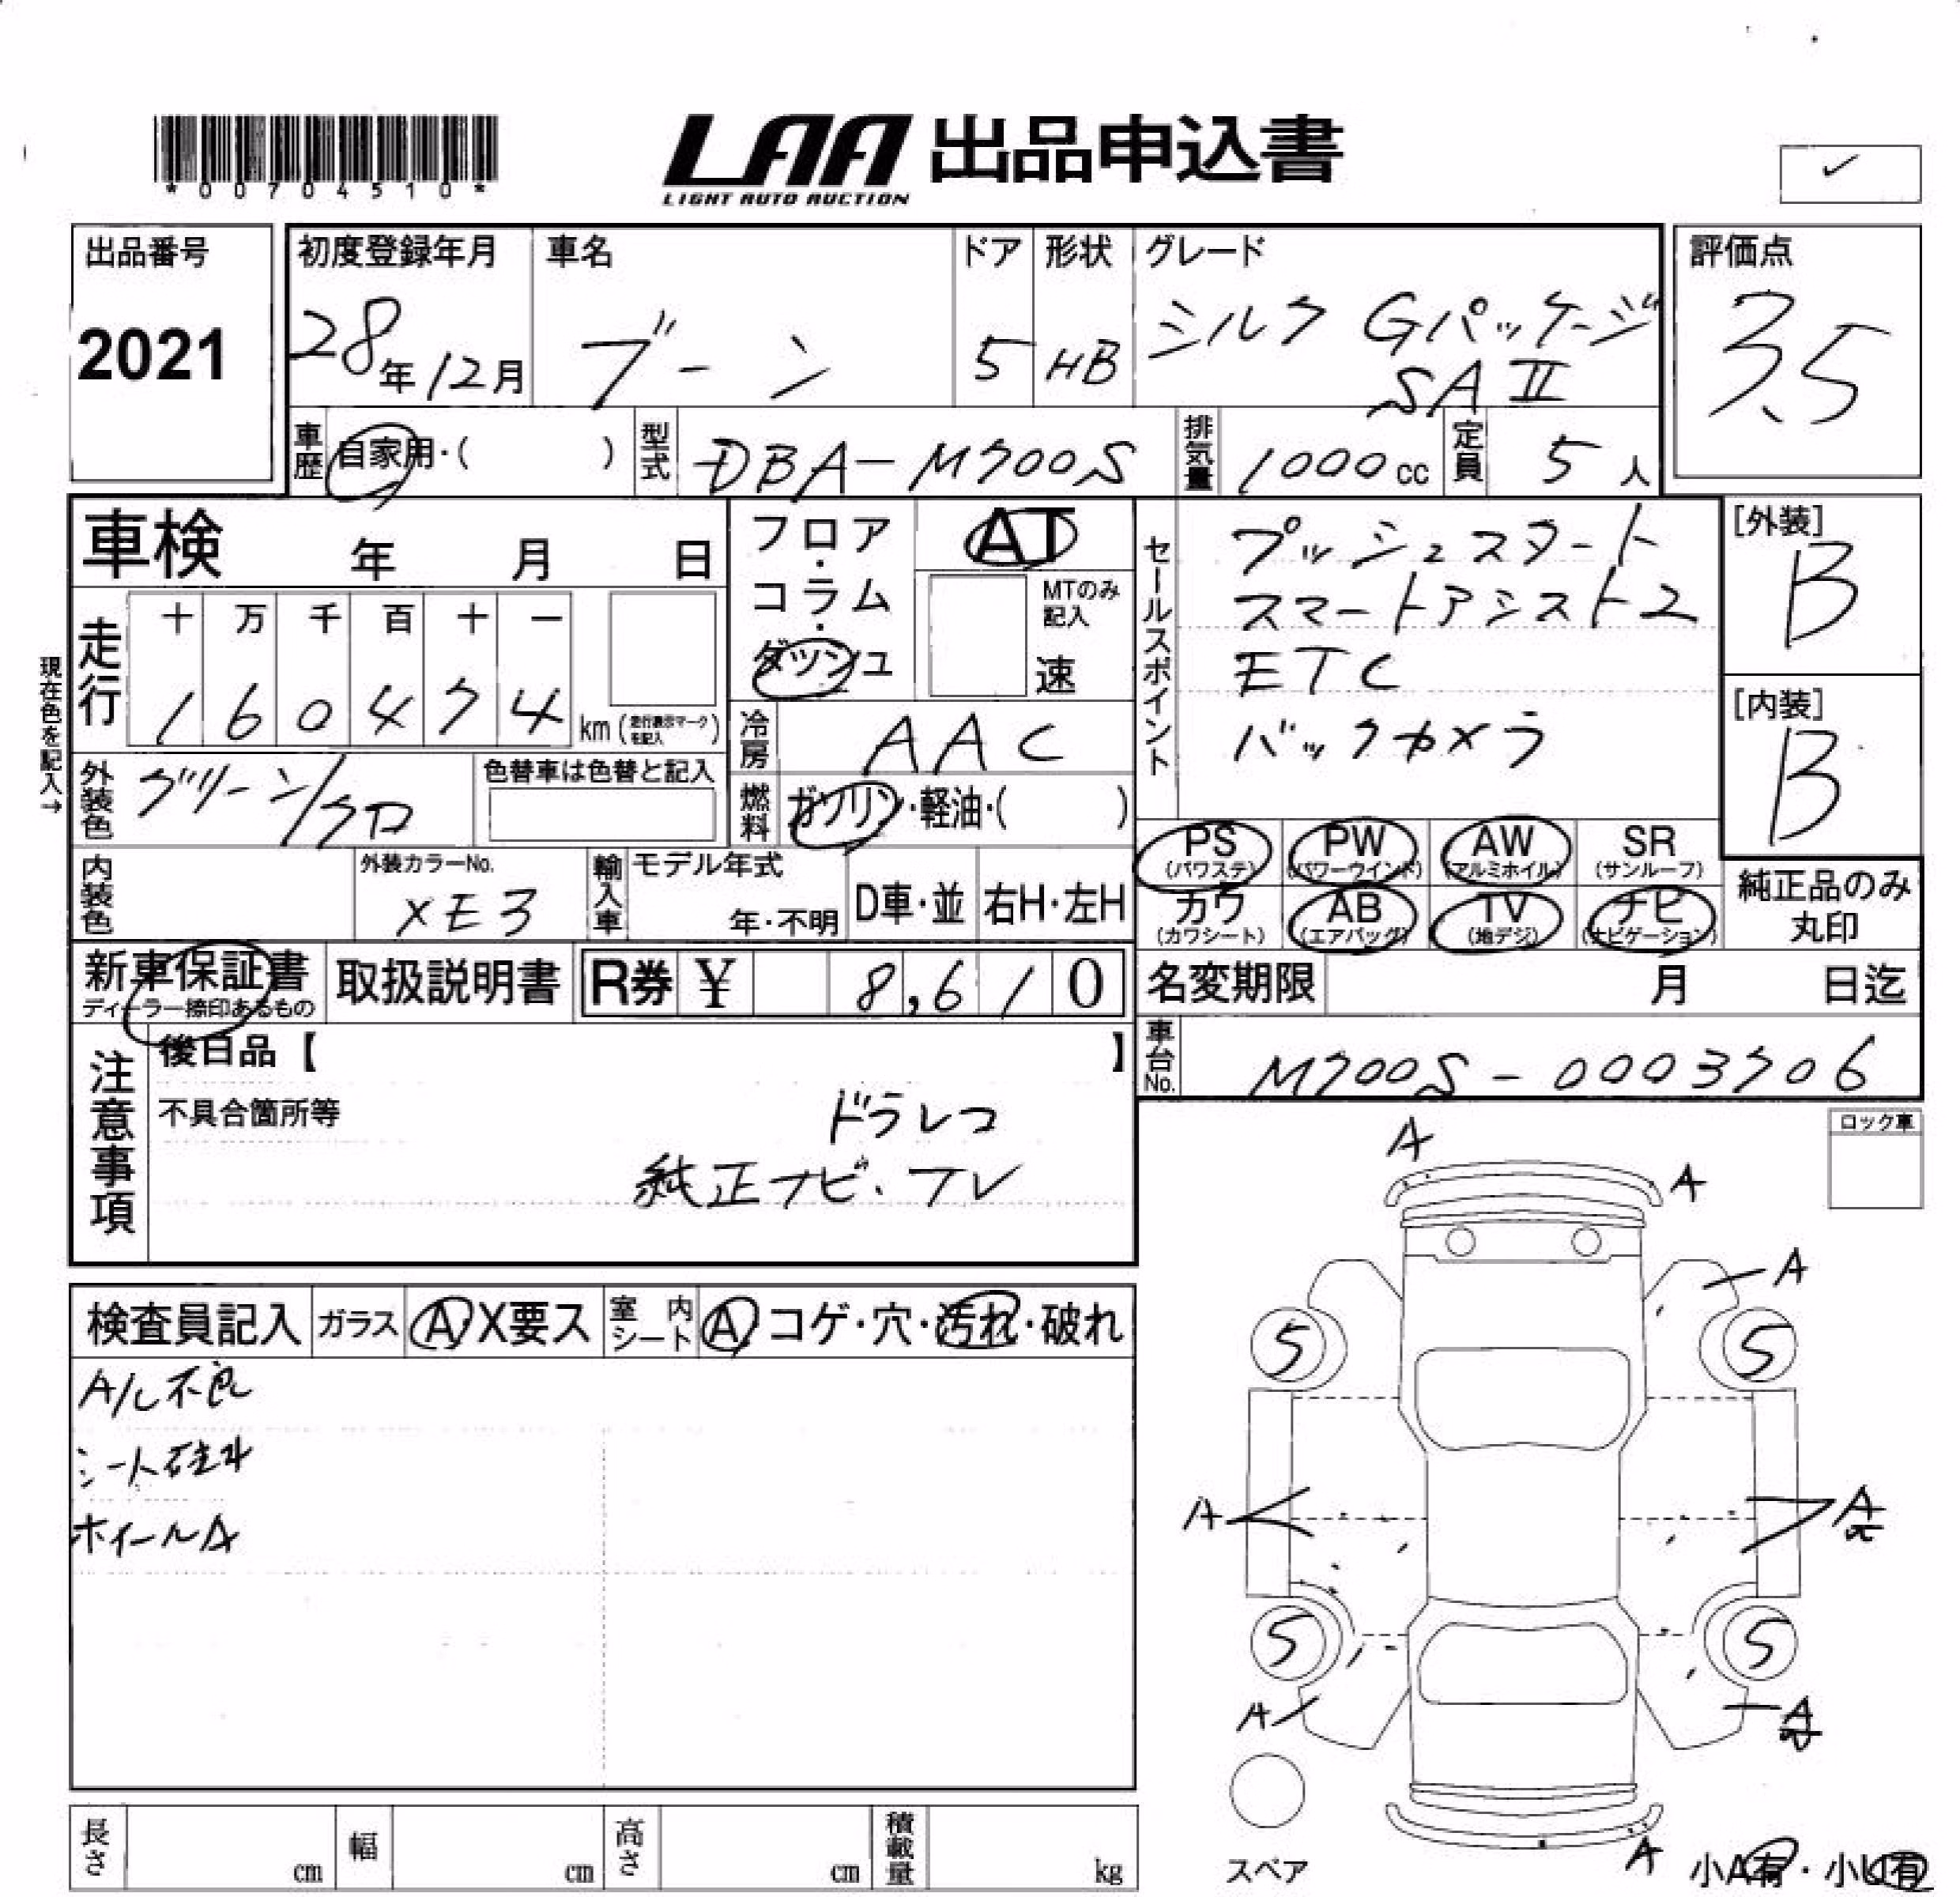 *00704510*
LAA 出品申込書
LIGHT AUTO AUCTION
出品番号
2021
初度登録年月
28年12月
車名
ブーン
ドア
5
形状
HB
グレード
シルク Gパッケージ
SAⅡ
評価点
3.5
車歴
自家用・( )
型式
DBA-M700S
排気量
1000cc
定員
5人
車検 年 月 日
フロア・コラム・ダッシュ
AT
MTのみ記入
速
セールスポイント
プッシュスタート
スマートアシスト2
ETC
バックカメラ
[外装]
B
[内装]
B
現在色を記入→
走行
十 万 千 百 十 一
1 6 0 4 7 4
km (走行表示マークを記入)
冷房
AAC
外装色
グリーン/クロ
色替車は色替と記入
燃料
ガソリン・軽油・( )
内装色
外装カラーNo.
XE3
輸入車
モデル年式
年・不明
D車・並
右H・左H
PS
(パワステ)
PW
(パワーウインド)
AW
(アルミホイル)
SR
(サンルーフ)
カワ
(カワシート)
AB
(エアバッグ)
TV
(地デジ)
ナビ
(ナビゲーション)
純正品のみ
丸印
新車保証書
ディーラー捺印あるもの
取扱説明書
R券 ¥ 8,610
名変期限 月 日迄
車台No.
M700S-0003706
注意事項
後日品【 】
不具合箇所等
ドラレコ
純正ナビ・TV
ロック車
検査員記入
ガラス
A X要ス
室内シート
A コゲ・穴・汚れ・破れ
A/C不良
ホイールA
A
A
A
5
5
A
A
5
5
A
A
A
スペア
小A有・小U有
長さ cm
幅 cm
高さ cm
積載量 kg